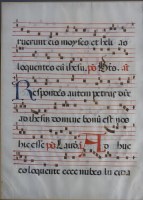 ruerunt eis moyses et helias
loquentes cu ihesu. ps
Respondes autem petrus dix
ad ihesum domine bonu est nos
hic esse. ps Lauda. Ad huc
eo loquente ecce nubes lucida